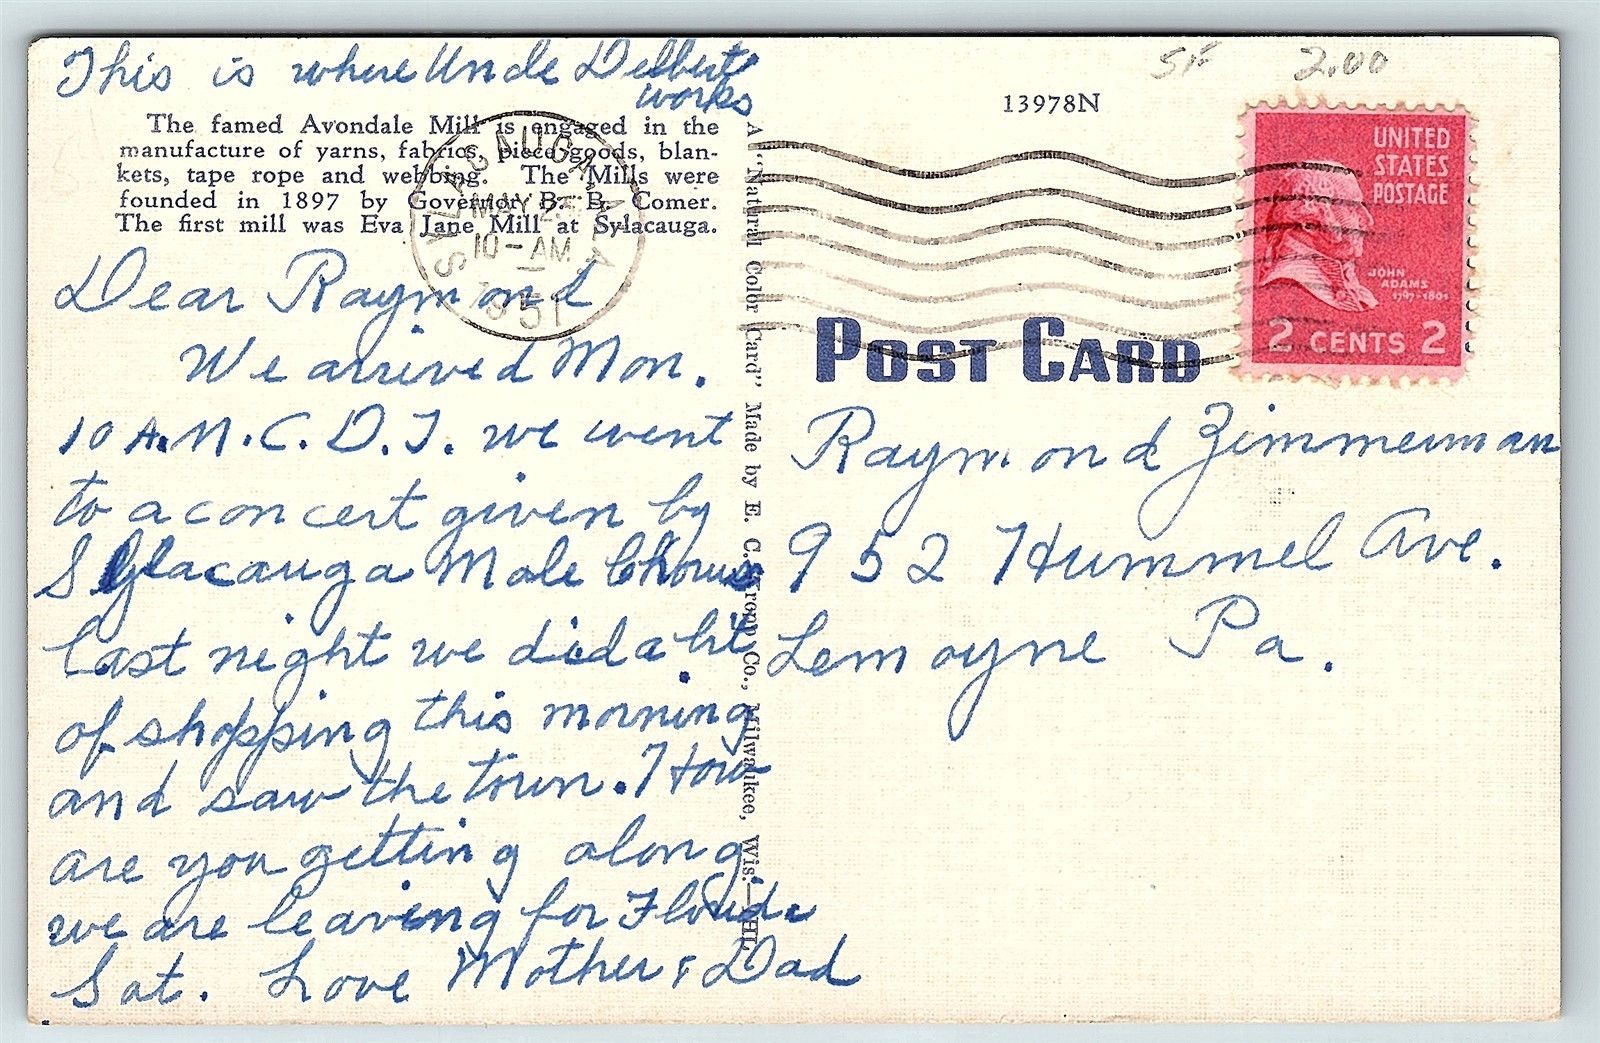 This is where Uncle Delbert
works
The famed Avondale Mill is engaged in the
manufacture of yarns, fabrics, piece goods, blan-
kets, tape rope and webbing. The Mills were
founded in 1897 by Governor B. B. Comer.
The first mill was Eva Jane Mill at Sylacauga.
SYLACAUGA ALA
MAY
10 - AM
1951
Dear Raymond
We arrived Mon.
10 A.M. C. D. T. we went
to a concert given by
Sylacauga Male Chorus
last night we did a bit
of shopping this morning
and saw the town. How
are you getting along
we are leaving for Florida
Sat. Love Mother & Dad
A "Natural Color Card" Made by E. C. Kropp Co., Milwaukee, Wis.
5F 2.00
13978N
UNITED
STATES
POSTAGE
JOHN
ADAMS
1797-1801
2 CENTS 2
POST CARD
Raymond Zimmerman
952 Hummel Ave.
Lemoyne Pa.